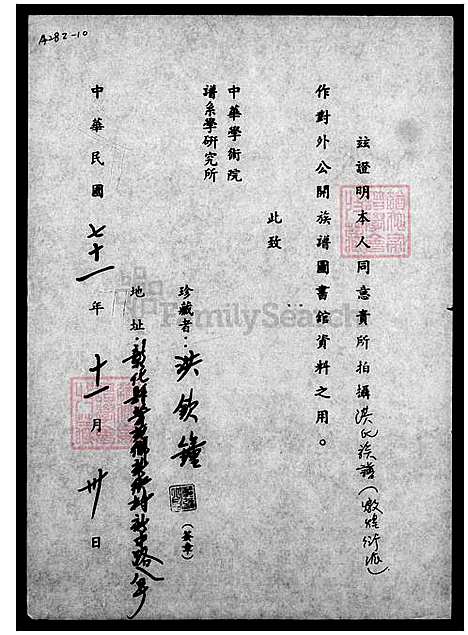 A282-10
茲證明本人同意貴所拍攝洪氏族譜（燉煌衍派）
作對外公開族譜圖書館資料之用。
此致
中華學術院
譜系學研究所
珍藏者：洪欽鐘（簽章）
地址：彰化縣芳苑鄉新街村
中華民國七十一年十一月卅日
FamilySearch